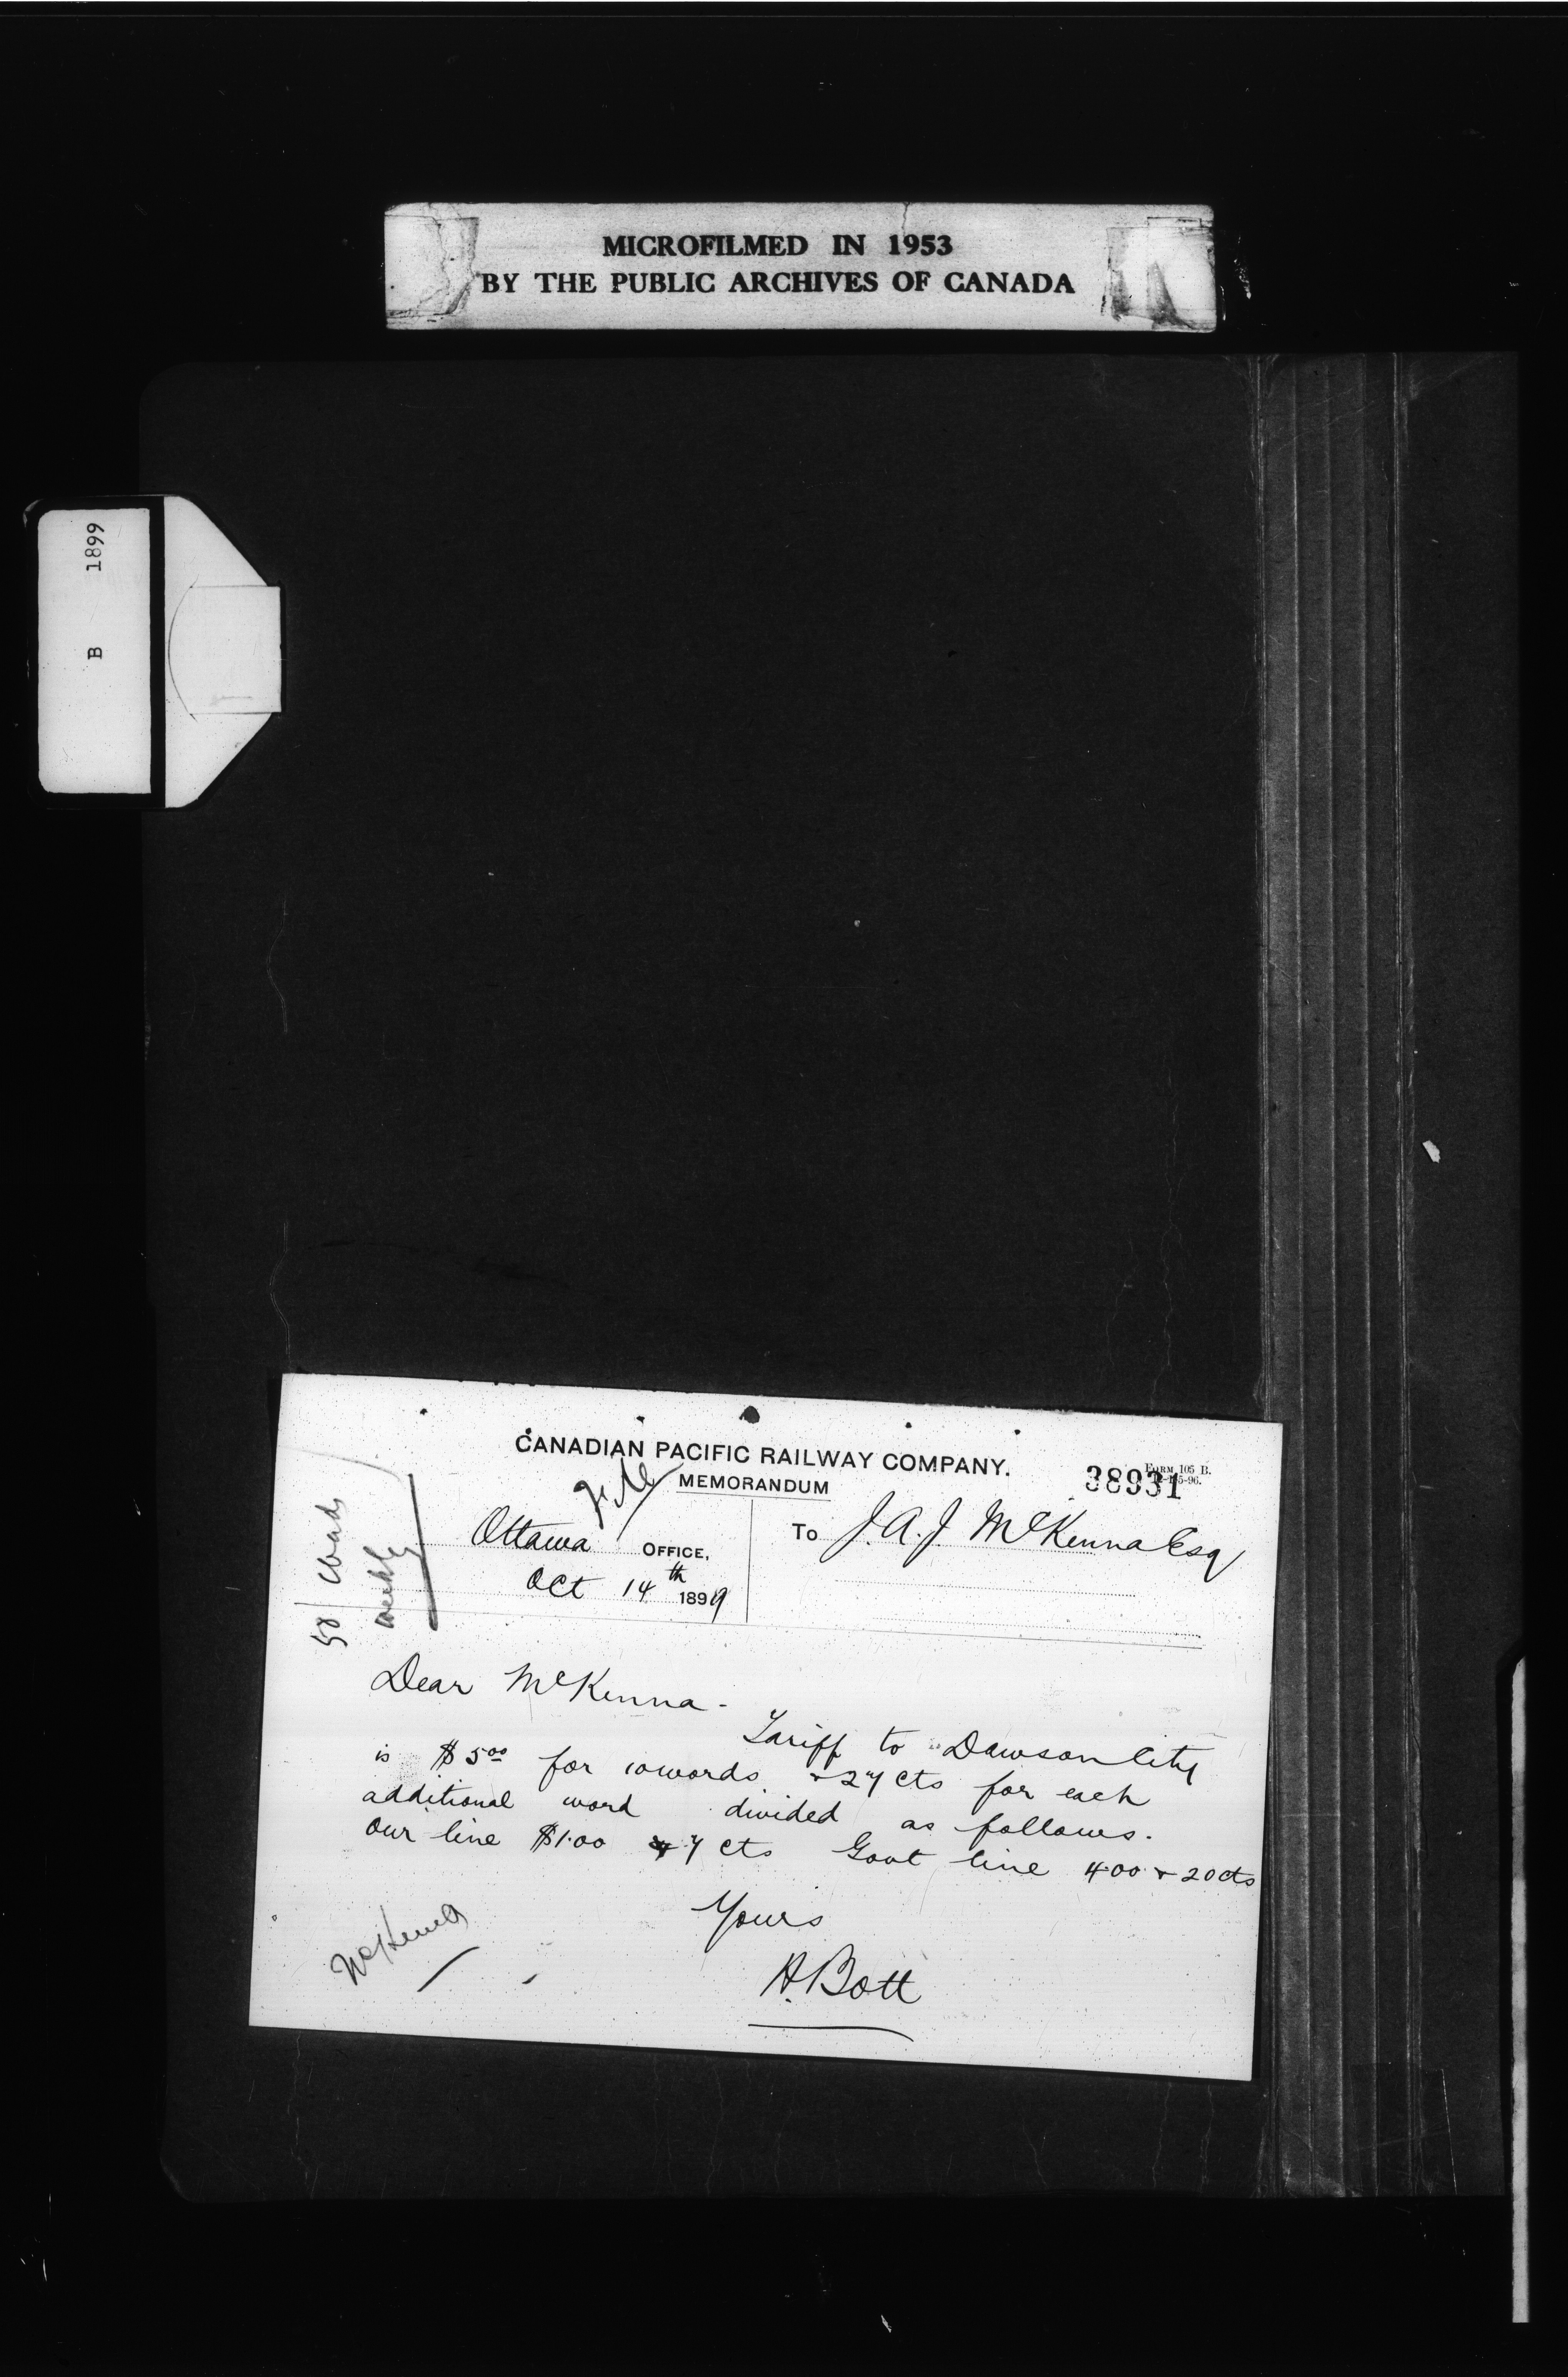 MICROFILMED IN 1953
BY THE PUBLIC ARCHIVES OF CANADA
B 1899
CANADIAN PACIFIC RAILWAY COMPANY.
FORM 105 B.
38931
MEMORANDUM
file
Ottawa OFFICE,
To J. A. J. McKenna Esq
Oct 14th 1899
50 words
weekly
Dear McKenna -
Tariff to Dawson City
is $5.00 for 10 words & 27 cts for each
additional word divided as follows.
Our line $1.00 & 7 cts Govt line 4.00 & 20 cts
Yours
A. Bott
McKenna